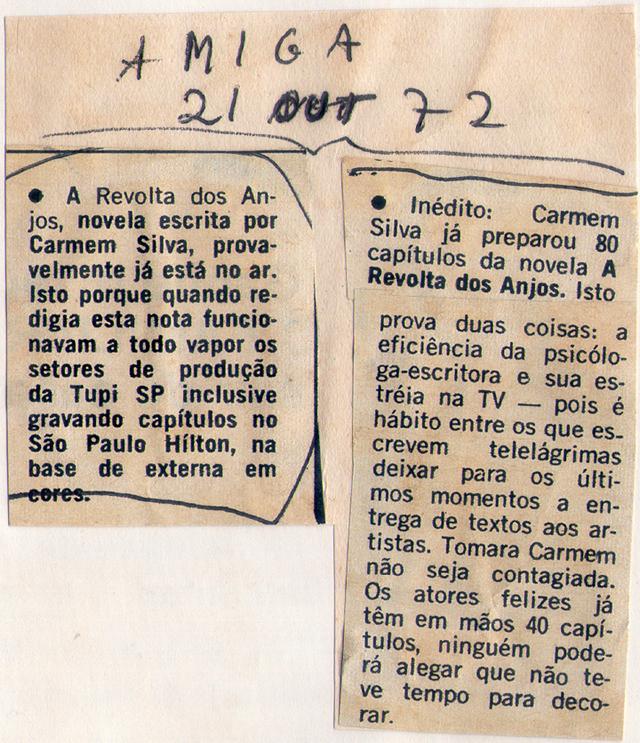 AMIGA
21 OUT 72
• A Revolta dos An-
jos, novela escrita por
Carmem Silva, prova-
velmente já está no ar.
Isto porque quando re-
digia esta nota funcio-
navam a todo vapor os
setores de produção
da Tupi SP inclusive
gravando capítulos no
São Paulo Hílton, na
base de externa em
cores.
• Inédito: Carmem
Silva já preparou 80
capítulos da novela A
Revolta dos Anjos. Isto
prova duas coisas: a
eficiência da psicólo-
ga-escritora e sua es-
tréia na TV — pois é
hábito entre os que es-
crevem telelágrimas
deixar para os últi-
mos momentos a en-
trega de textos aos ar-
tistas. Tomara Carmem
não seja contagiada.
Os atores felizes já
têm em mãos 40 capí-
tulos, ninguém pode-
rá alegar que não te-
ve tempo para deco-
rar.